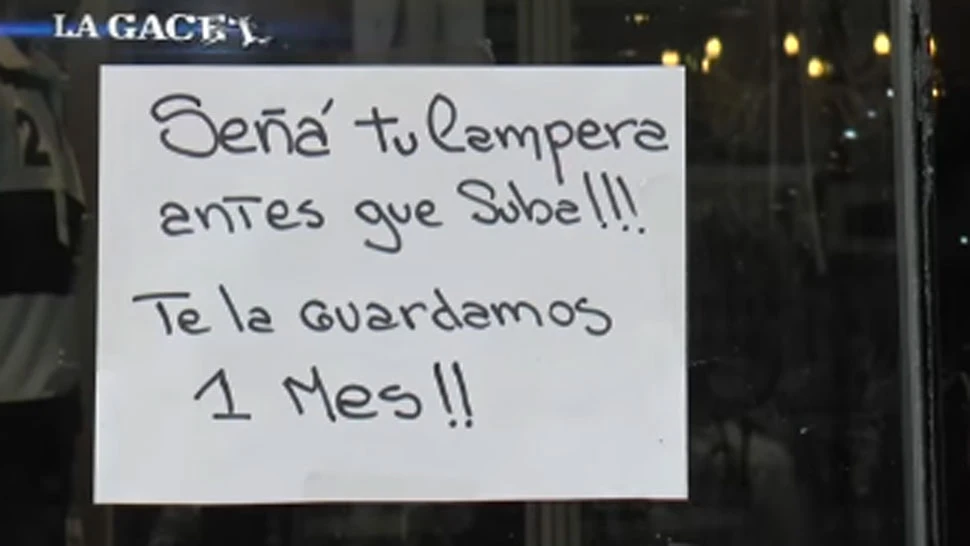 LA GACETA
Señá tu Campera
antes que Suba!!!
Te la Guardamos
1 Mes!!
2